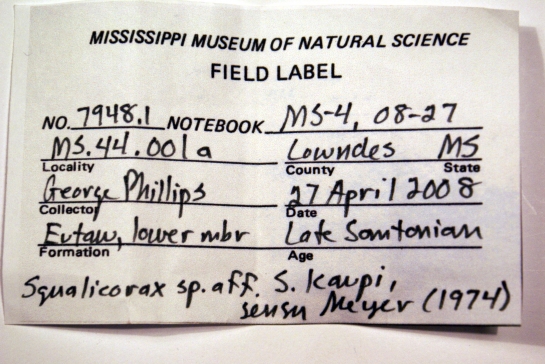 MISSISSIPPI MUSEUM OF NATURAL SCIENCE
FIELD LABEL
NO. 7948.1 NOTEBOOK MS-4, 08-27
MS.44.001a Lowndes MS
Locality County State
George Phillips 27 April 2008
Collector Date
Eutaw, lower mbr Late Santonian
Formation Age
Squalicorax sp. aff. S. kaupi,
sensu Meyer (1974)